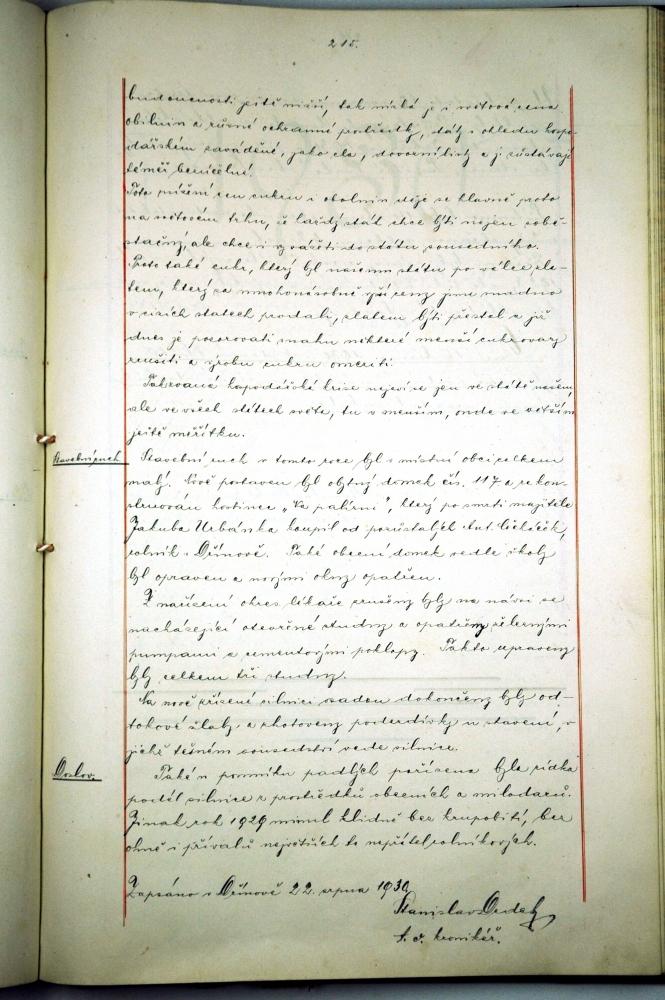 215.
budoucnosti ještě nižší, tak nízká je i světová cena
obilnin a různé ochranné prostředky, státy s ohledu hospo-
dářském zaváděné, jako cla, dovozní listy a j. zůstávají
téměř bezúčelné.
Toto snížení cen cukru i obilnin děje se hlavně proto
na světovém trhu, že každý stát chce býti nejen sobě-
stačný, ale chce i vyvážeti do státu sousedního.
Proto také cukr, který byl našemu státu po válce zla-
tem, který za mnohonásobně vyšší ceny jsme snadno
v cizích státech prodali, zlatem býti přestal a již
dnes je pozorovati snahu některé menší cukrovary
zrušiti a výrobu cukru omeziti.
Takzvaná hospodářská krise nejeví se jen ve státě našem,
ale ve všech státech světa, tu v menším, onde ve větším
ještě měřítku.
Stavební ruch
Stavební ruch v tomto roce byl v místní obci celkem
malý. Nově postaven byl obytný domek čís. 117 a rekon-
struován hostinec „Na palírni", který po smrti majitele
Jakuba Urbánka koupil od pozůstalých Ant.
rolník v Dřínově. Také obecní domek vedle školy
byl opraven a novými okny opatřen.
Z nařízení okres. lékaře zrušeny byly na návsi se
nacházející otevřené studny a opatřeny železnými
pumpami a cementovými poklopy. Takto upraveny
byly celkem tři studny.
Na nově zřízené silnici zadem dokončeny byly od-
tokové žlaby a zhotoveny podezdívky u stavení, v
jichž těsném sousedství vede silnice.
Doslov.
Také u pomníku padlých pořízena byla zídka
podél silnice z prostředků obecních a milodarů.
Jinak rok 1929 minul klidně bez krupobití, bez
ohně i přívalů největších to nepřátel rolníkových.
Zapsáno v Dřínově 22. srpna 1930
Stanislav
t. č. kronikář.